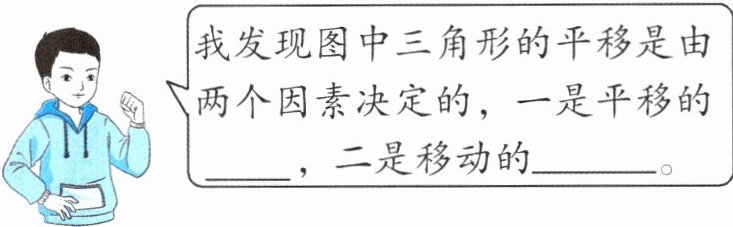 我发现图中三角形的平移是由
两个因素决定的，一是平移的
____，二是移动的______。